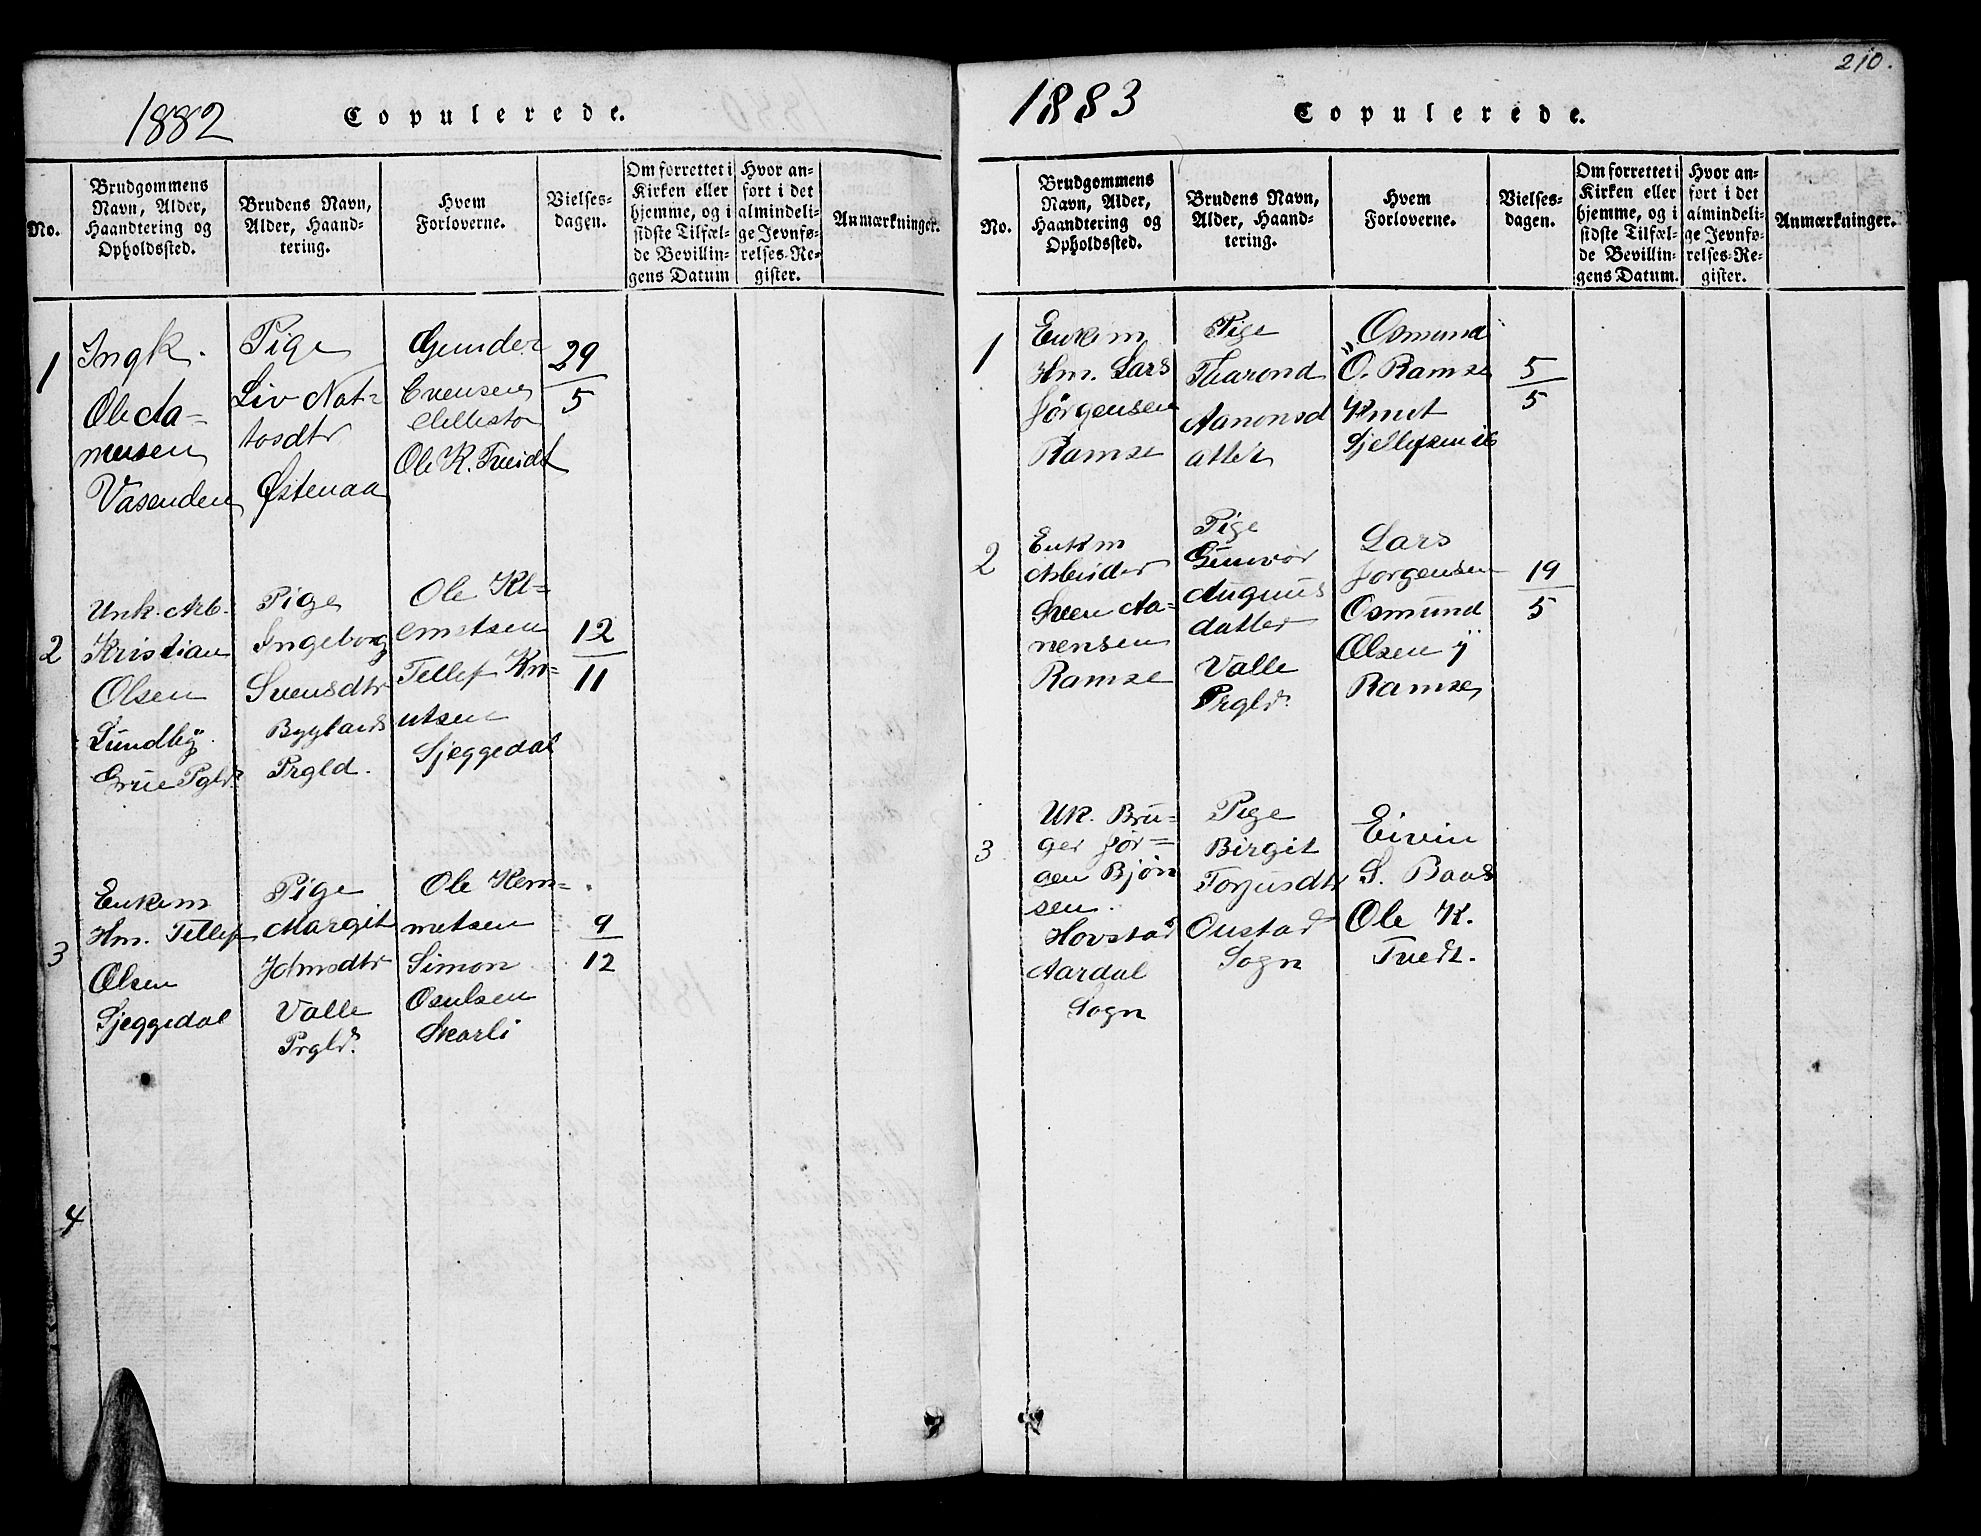 1882
Copulerede.
No.
Brudgommens
Navn, Alder,
Haandtering og
Opholdssted.
Brudens Navn,
Alder, Haand-
tering.
Hvem
Forloverne.
Vielses-
dagen.
Om forrettet i
Kirken eller
hjemme, og i
sidste Tilfæl-
de Bevillin-
gens Datum
Hvor an-
ført i det
almindeli-
ge Jevnfø-
relses-Re-
gister.
Anmærkninger.
1
Ingk.
Ole Aa-
nensen
Vasenden
Pige
Liv Not-
tosdtr
Østenaa
Gunder
Evensen
Ole K. Tveidt
29
5
2
Unk. Arb.
Kristian
Olsen
Lundby
Grue Pgld.
Pige
Ingeborg
Svensdtr
Byglands
Prgld.
Ole Kl-
emetsen
Tellef Kn-
utsen
Sjeggedal
12
11
3
Enkem
Hm. Tellef
Olsen
Sjeggedal
Pige
Margit
Johnsdtr
Valle
Prgld.
Ole Klem-
metsen
Simon
Osulsen
Skarli
9
12
4
210.
1883
Copulerede.
No.
Brudgommens
Navn, Alder,
Haandtering og
Opholdssted.
Brudens Navn,
Alder, Haand-
tering.
Hvem
Forloverne.
Vielses-
dagen.
Om forrettet i
Kirken eller
hjemme, og i
sidste Tilfæl-
de Bevillin-
gens Datum.
Hvor an-
ført i det
almindeli-
ge Jevnfø-
relses-Re-
gister.
Anmærkninger.
1
Enkem
Hm. Lars
Jørgensen
Ramse
Pige
Tharond
Aanonsd
atter
Osmund
O. Ramse
Knut
5
5
2
Enkm
Arbeider
Sven Aa-
nensen
Ramse
Pige
Gunvor
Augnus
datter
Valle
Prgld.
Lars
Jorgensen
Osmund
Olsen
Ramse
19
5
3
Uk. Bru-
ger Jør-
gen Bjøn
sen.
Hovstad
Aardal
Sogn
Pige
Birgit
Torjusdtr
Oustad
Sogn
Eivin
S. Baas
Ole K.
Tvedt.